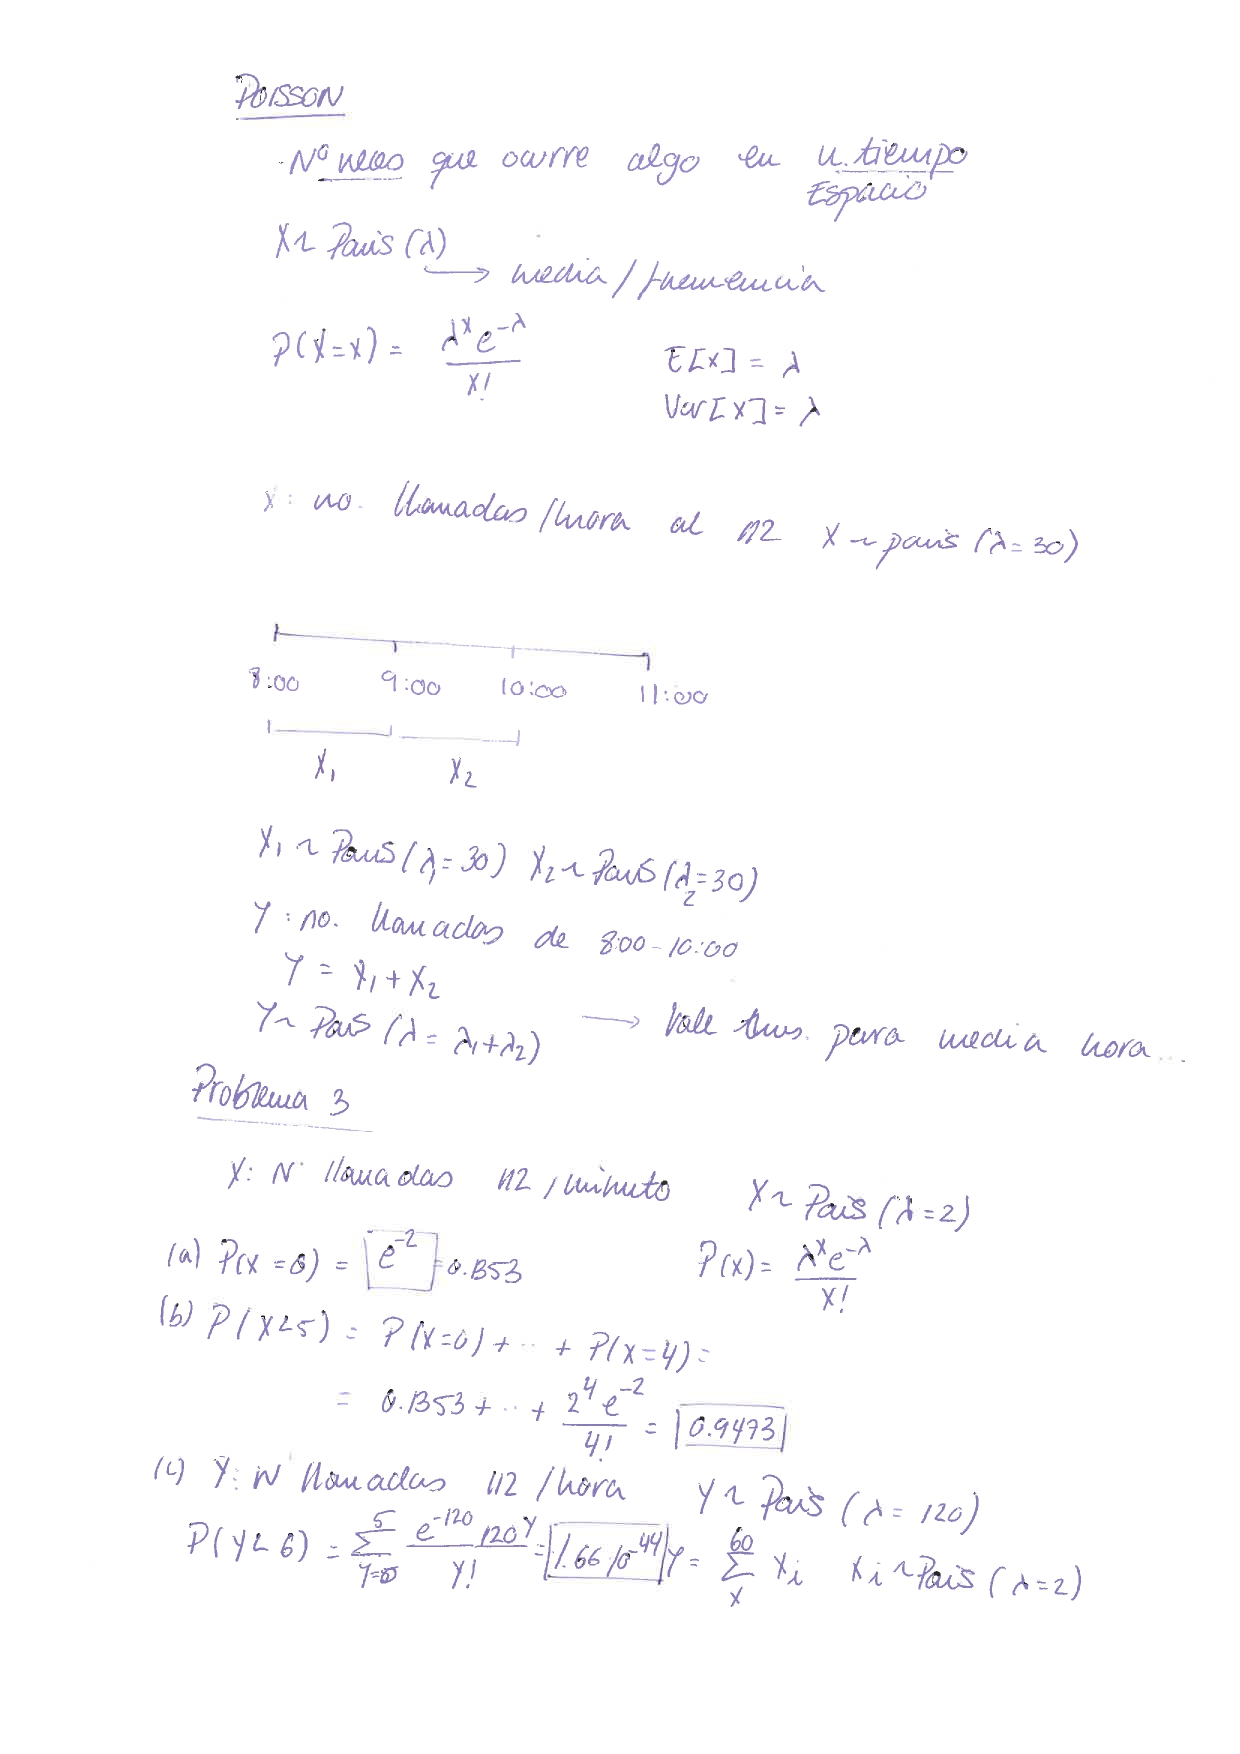 POISSON
- Nº veces que ocurre algo en u. tiempo
Espacio
X ~ Pois (λ)
→ media / frecuencia
P(X=x) = λ^x e^-λ / x!
E[X] = λ
Var[X] = λ
X: no. llamadas/hora al 112 X ~ pois (λ=30)
8:00 9:00 10:00 11:00
X₁ X₂
X₁ ~ Pois (λ₁=30) X₂ ~ Pois (λ₂=30)
Y: no. llamadas de 8:00-10:00
Y = X₁ + X₂
Y ~ Pois (λ = λ₁+λ₂) → Vale para media hora...
Problema 3
X: Nº llamadas 112 / minuto X ~ Pois (λ=2)
(a) P(X=0) = e^-2 = 0.1353 P(x) = λ^x e^-λ / x!
(b) P(X<5) = P(X=0) + ... + P(X=4) =
= 0.1353 + ... + 2^4 e^-2 / 4! = 0.9473
(c) Y: Nº llamadas 112 / hora Y ~ Pois (λ=120)
P(Y<6) = Σ_{Y=0}^{5} e^-120 120^Y / Y! = 1.66 10^-44 Y = Σ_{x}^{60} Xi Xi ~ Pois (λ=2)